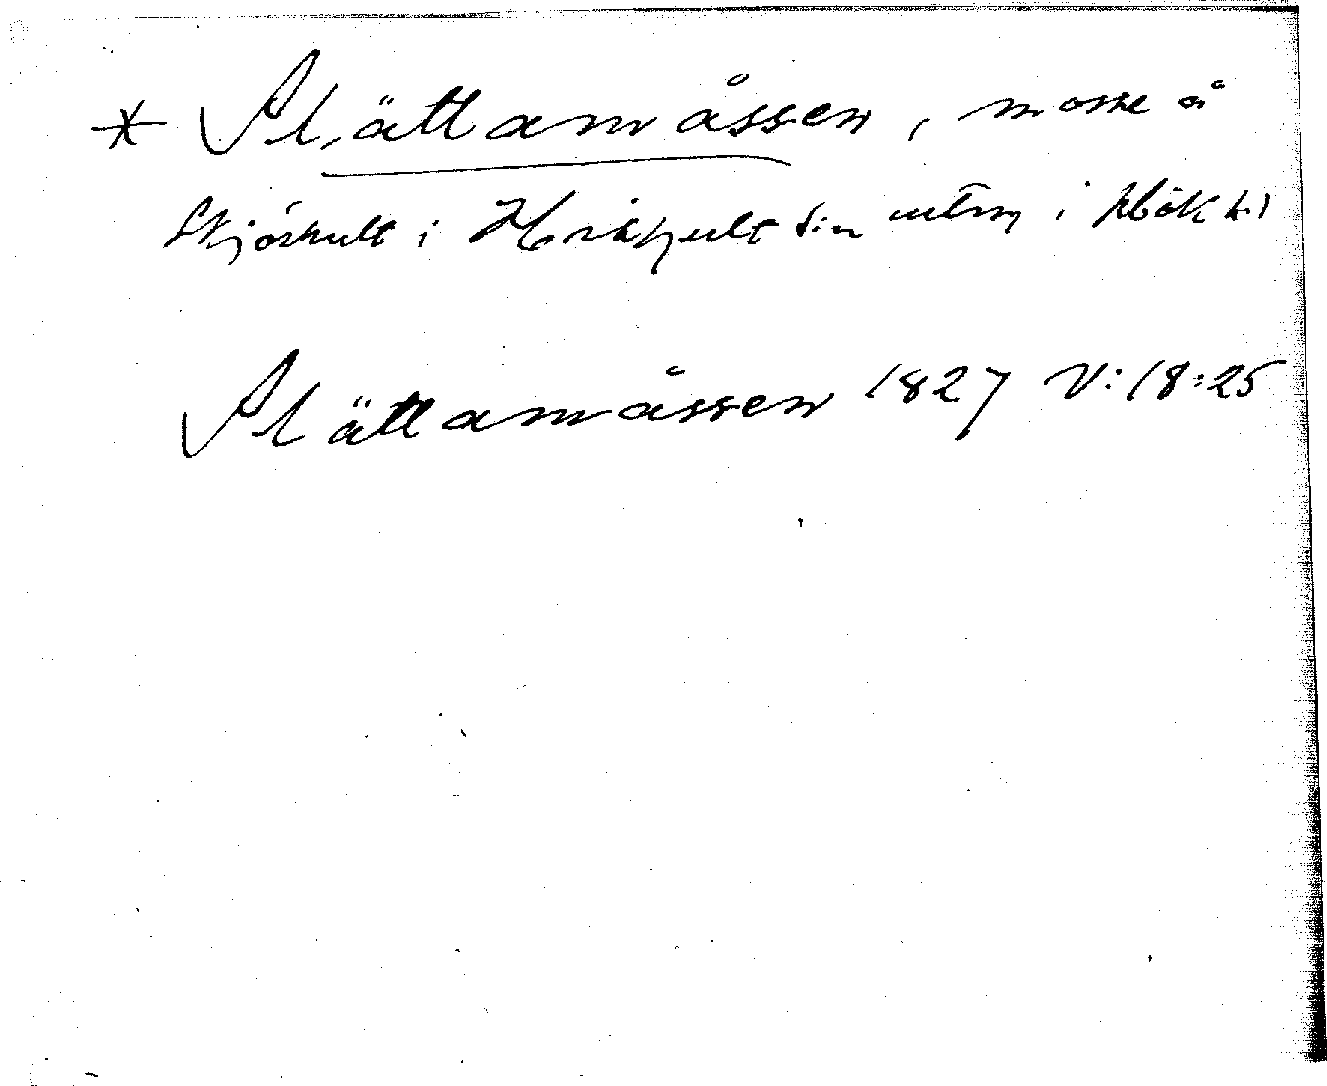 * Slättamåssen, mosse å
Skjöshult i Hishult s:n i Hök h:d
Slättamåssen 1827 V:18:25